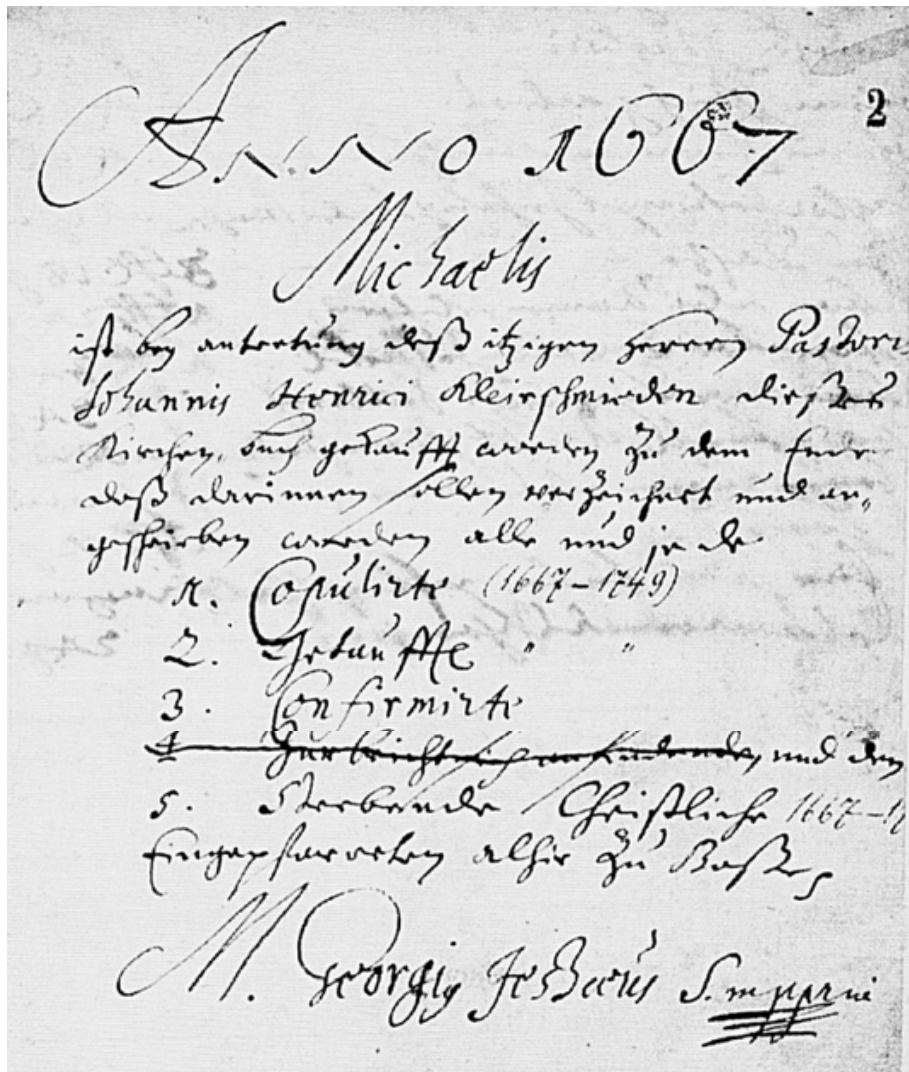 2
ANNO 1667
Michaelis
ist bey antretung deß itzigen Herren Pastoris
Johannis Henrici Kleinschmieden dießes
Kirchen buch gekaufft worden zu dem Ende
daß darinnen sollen verzeichnet und an„
geschrieben werden alle und jede
1. Copulirte (1667–1749)
2. Getauffte " "
3. Confirmirte
4 Zur beicht sich anfindenden und dem
5. Sterbende Christliche 1667–17
Eingepfarreten alhir zu
M. Georgius S. mppria